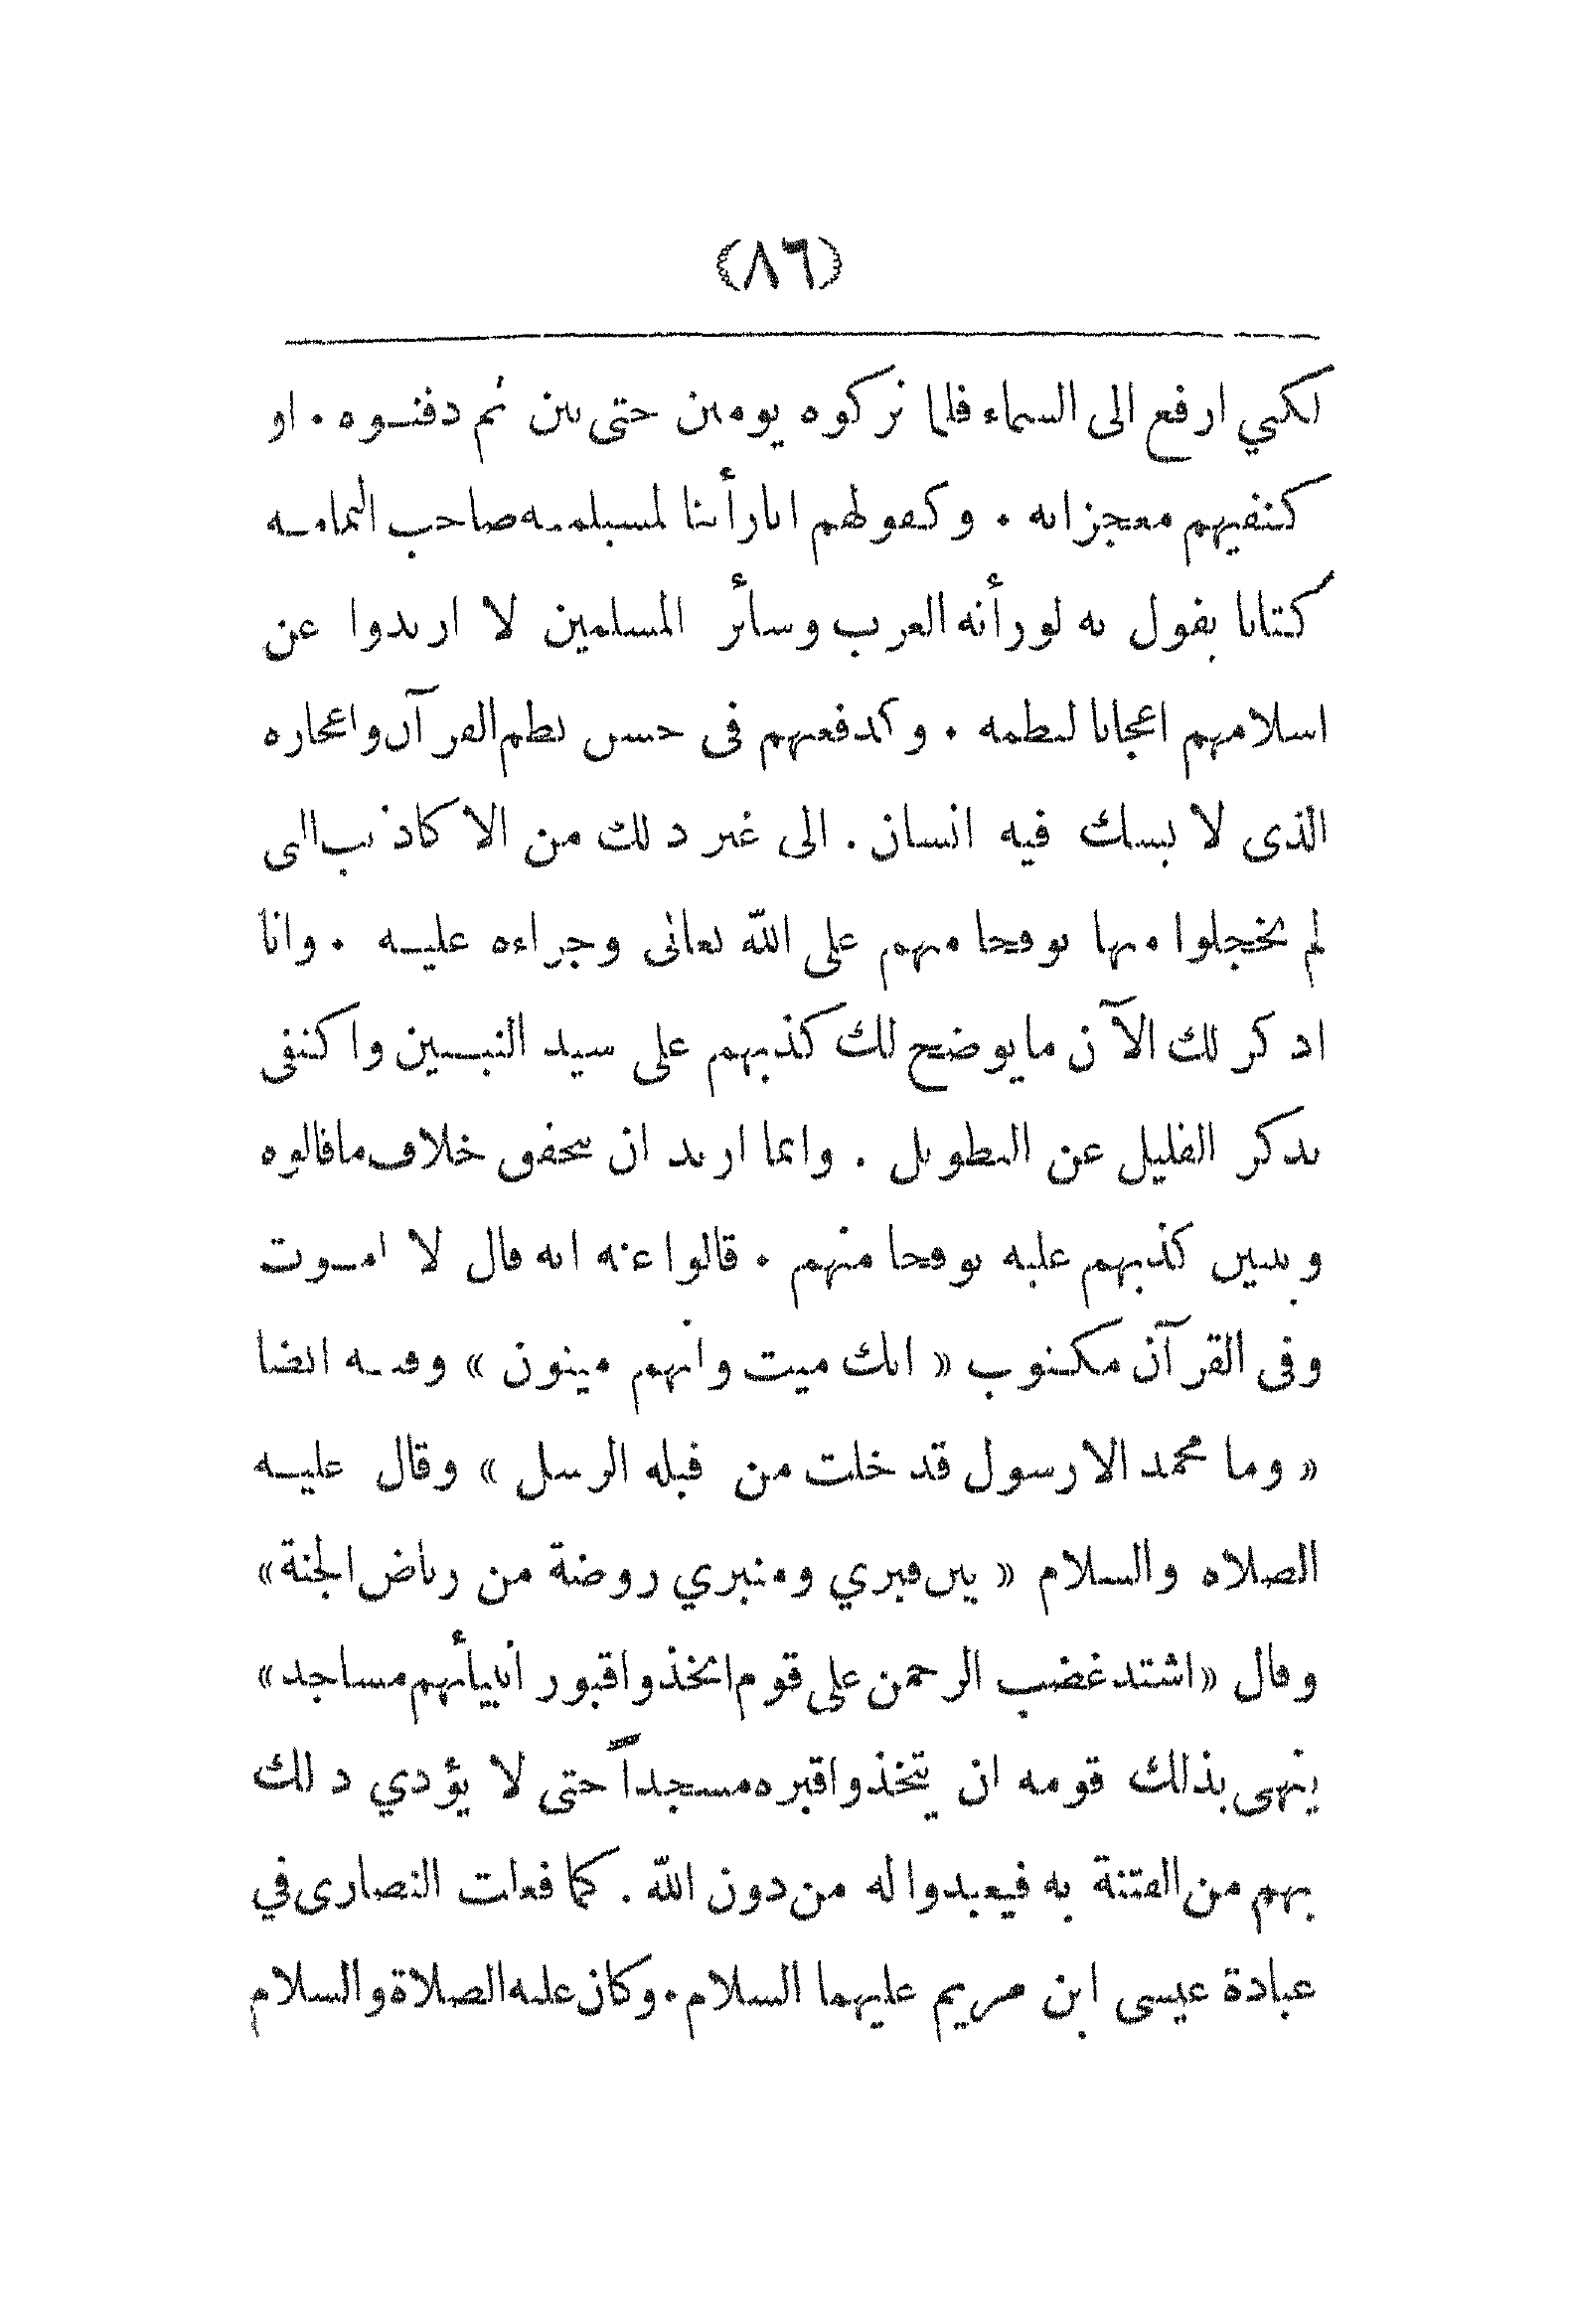 (٨٦)
لكي ارفع الى السماء فلما تركوه يومين حتى نتن ثم دفنوه . او
كنفيهم معجزاته . وكقولهم انا رأينا لمسيلمة صاحب اليمامة
كتابا يقول به لو رأته العرب وسائر المسلمين لا ارتدوا عن
اسلامهم اعجابا لنظمه . وكدفعهم فى حسن نظم القرآن واعجازه
الذى لا يسك فيه انسان . الى غير ذلك من الاكاذيب التى
لم يخجلوا منها توقحا منهم على الله تعالى وجراءة عليه . وانا
اذكر لك الآن ما يوضح لك كذبهم على سيد النبيين واكتفى
بذكر القليل عن التطويل . وانما اريد ان يتحقق خلاف ما قالوه
ويتبين كذبهم عليه توقحا منهم . قالوا عنه انه قال لا اموت
وفى القرآن مكتوب « انك ميت وانهم ميتون » وفيه ايضا
« وما محمد الا رسول قد خلت من قبله الرسل » وقال عليه
الصلاة والسلام « بين قبري ومنبري روضة من رياض الجنة »
وقال « اشتد غضب الرحمن على قوم اتخذوا قبور أنبيائهم مساجد »
ينهى بذلك قومه ان يتخذوا قبره مسجداً حتى لا يؤدي ذلك
بهم من الفتنة به فيعبدوا له من دون الله . كما فعلت النصارى في
عبادة عيسى ابن مريم عليهما السلام . وكان عليه الصلاة والسلام